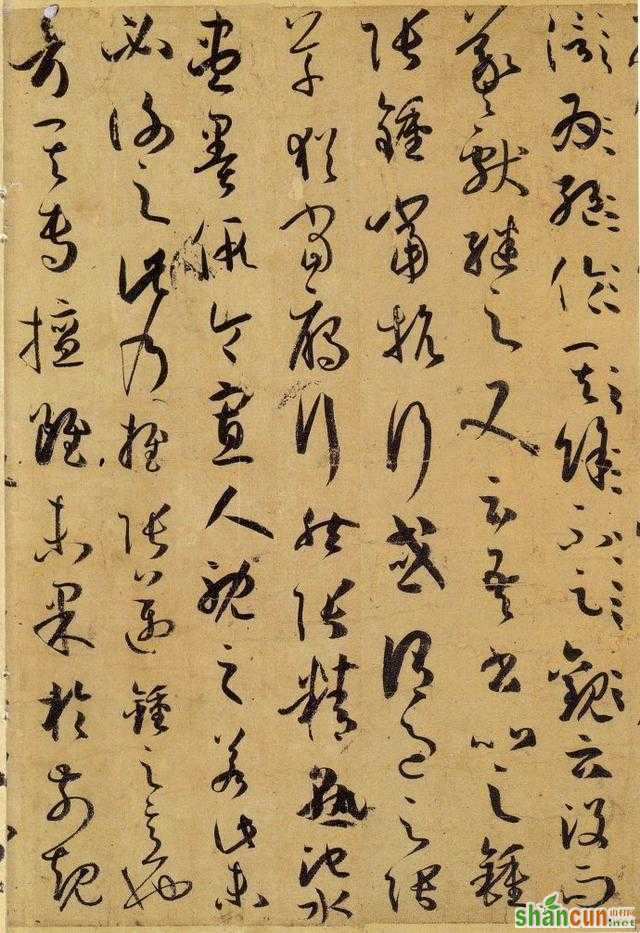 為絕倫其餘不足觀云沒而
羲獻繼之又云吾書比之鍾
張鍾當抗行或謂過之張
草猶當鴈行然張精熟池水
盡墨假令寡人耽之若此未
必謝之此乃推張邁鍾之意也
考其專擅雖未果於前規
shancun
.net